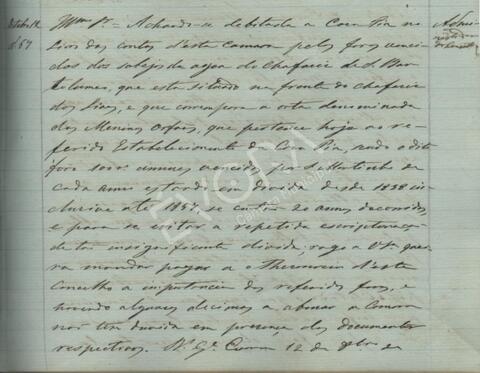 Outubro 12
d'57
Illmo Sr. = Achando-se debitada a Casa Pia no
Livro das contas d'esta Camara pelos foros venci
dos dos sobejos da agoa do Chafariz de S. Bar
tolomeu, que está situado na frente do chafariz
das Bravas, e que correm para a orta denominada
dos Meninos Orfãos, que pertence hoje ao re-
ferido Estabelecimento da Casa Pia, sendo o dito
foro annuaes vencidos por S. Martinho de
cada anno estando em divida desde 1838 in
clusive até 1857 se contão 20 annos decorridos,
e para se evitar a repetida escripturação
de tão insignificante divida, rogo a V.Sa quei
ra mandar pagar a o Thesoureiro d'este
Concelho a importancia dos referidos foros, e
havendo algumas decimas a abonar a Camara
não tem duvida em presença dos documentos
respectivos. Ds. Ge. Evora 12 de 8bro de
EVORA
Camara Municipal